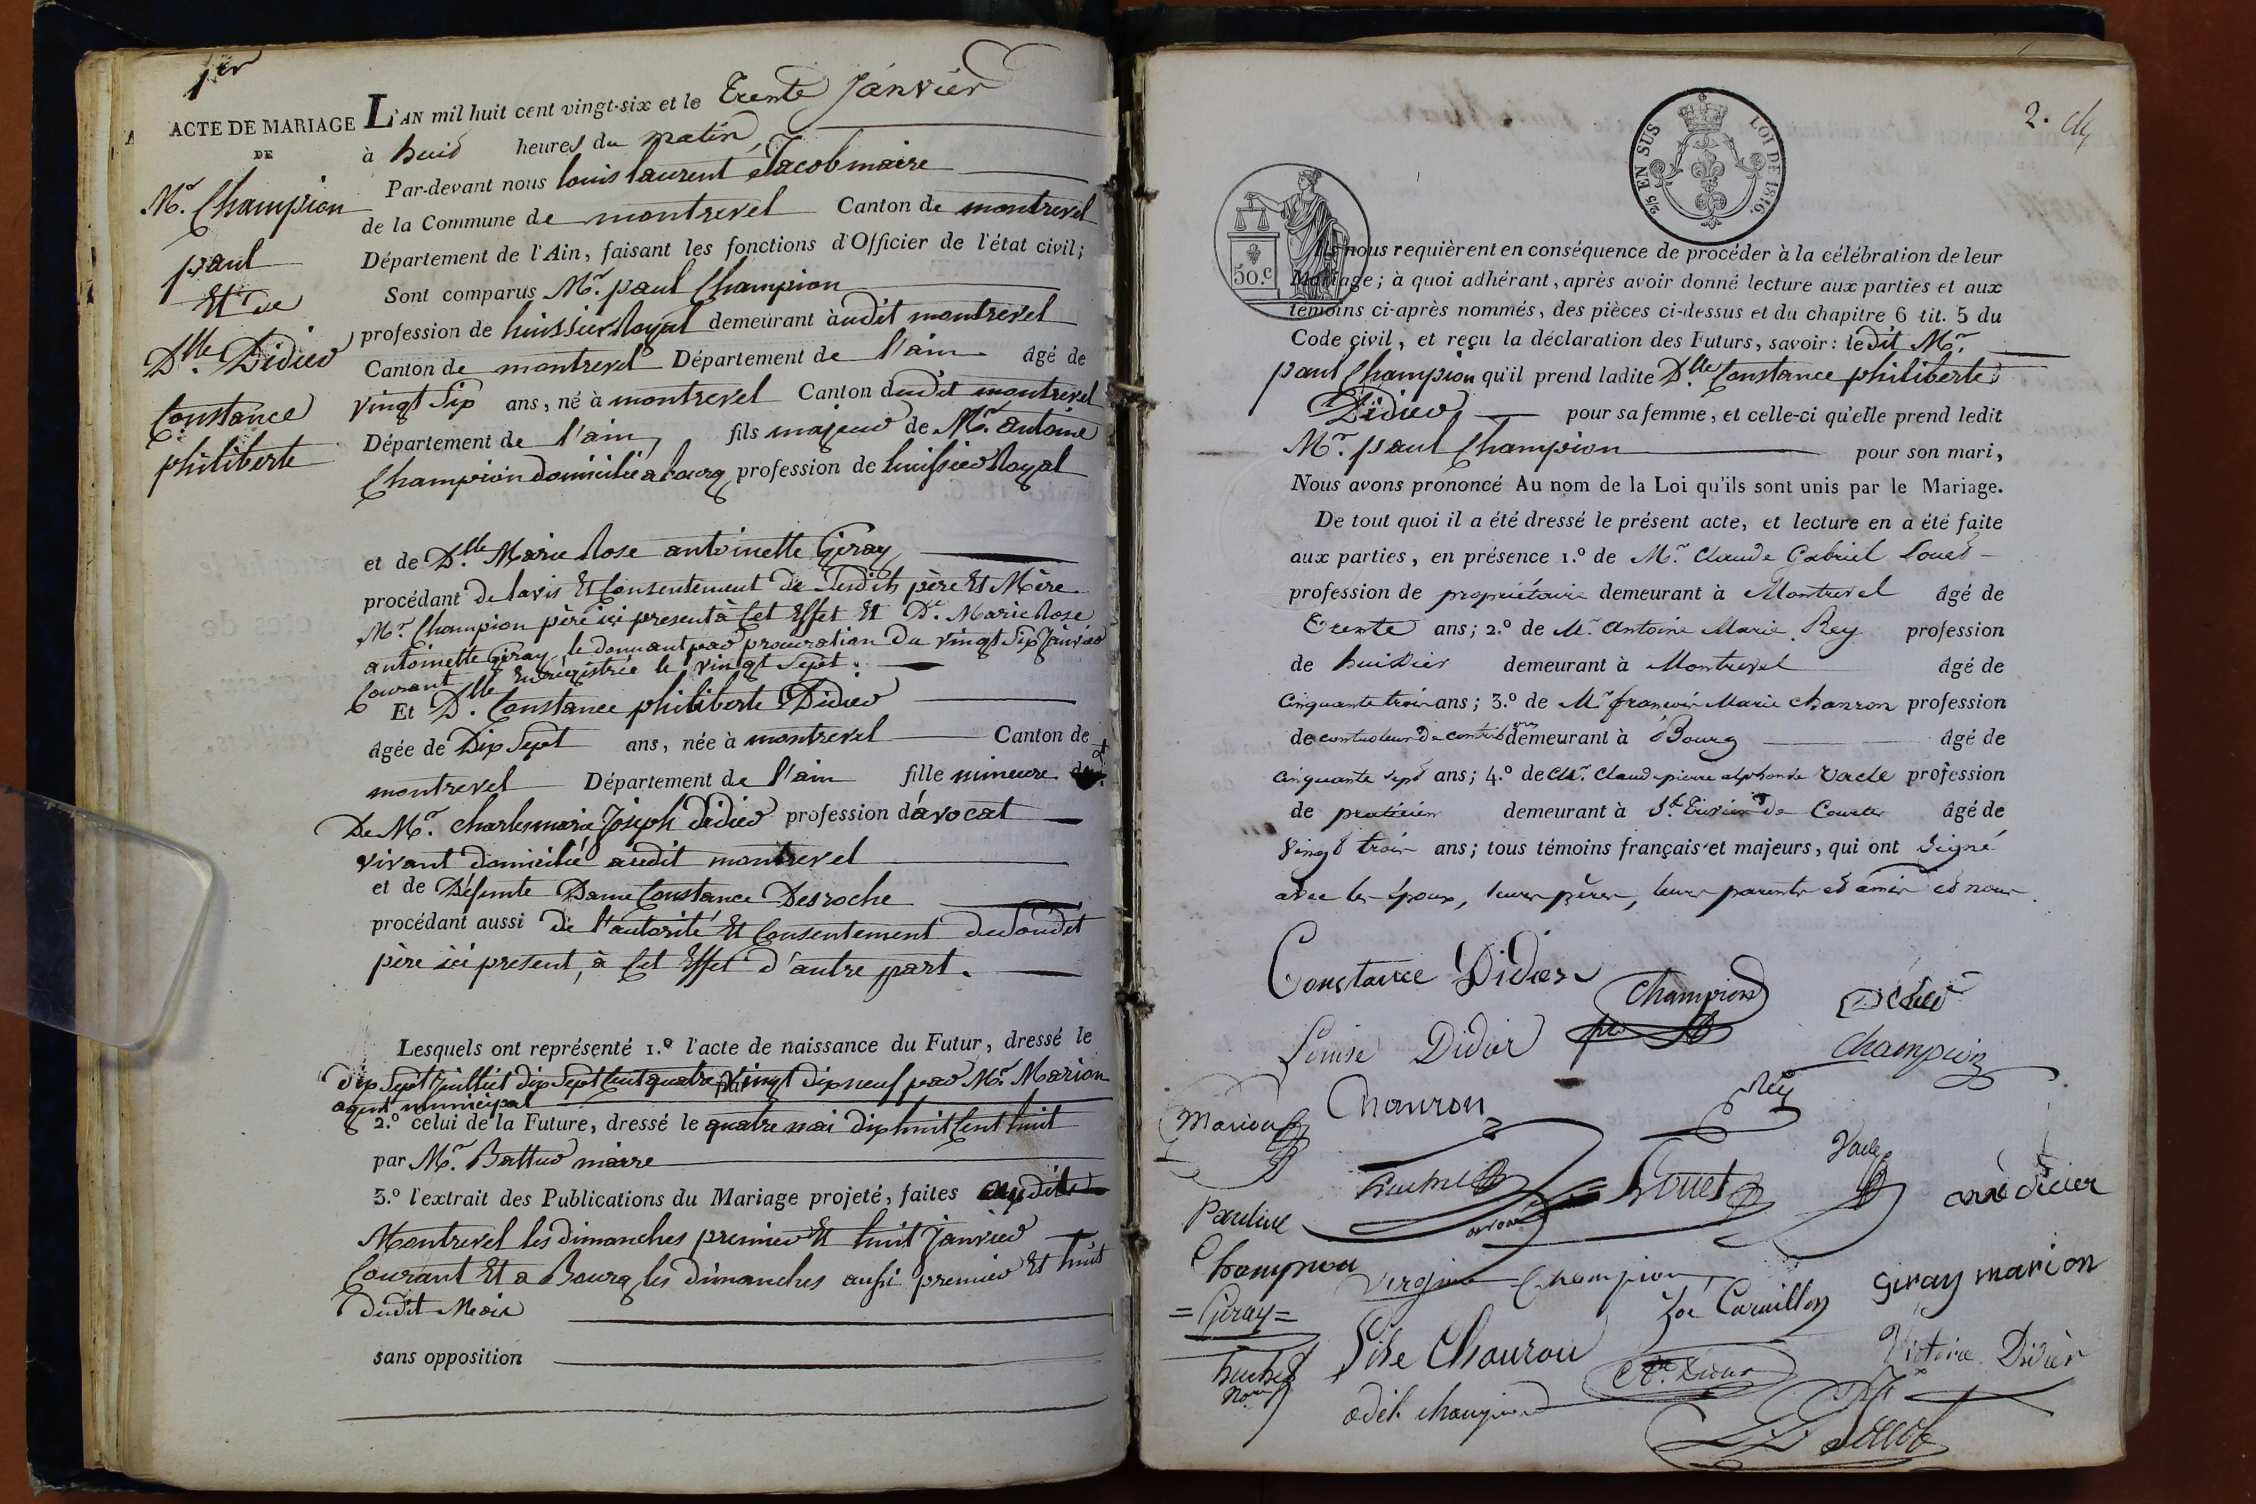 1er
ACTE DE MARIAGE
DE
Mr. Champion
paul
Et de
Dlle. Didier
Constance
philiberte
L'AN mil huit cent vingt-six et le Trente Janvier
à huit heures du matin,
Par-devant nous louis laurent Jacob maire
de la Commune de montrevel Canton de montrevel
Département de l'Ain, faisant les fonctions d'Officier de l'état civil;
Sont comparus Mr. paul Champion
profession de huissier Royal demeurant audit montrevel
Canton de montrevel Département de l'ain âgé de
vingt Six ans, né à montrevel Canton dudit montrevel
Département de l'ain, fils majeur de Mr. antoine
Champion domicilié a bourg, profession de huissier Royal
et de Dlle Marie Rose antoinette Giray
procédant de lavis Et Consentement de Sesdits père Et Mère
Mr. Champion père ici present à Cet Effet Et De. Marie Rose
antoinette Giray le donnant par procuration du vingt Six Janvier
Courant Enregistrée le vingt Sept.
Et Dlle. Constance philiberte Didier
âgée de Dix Sept ans, née à montrevel Canton de
montrevel Département de l'ain fille mineure
De Mr. Charlesmarie Joseph Didier profession d'avocat
vivant domicilié audit montrevel
et de Défunte Dame Constance Desroche
procédant aussi de l'autorité Et Consentement de Sondit
père ici present, à Cet Effet d'autre part.
Lesquels ont représenté 1.º l'acte de naissance du Futur, dressé le
dix Sept Juillet dix Sept Cent quatre vingt dix neuf par Mr. Marion
agent municipal
2.º celui de la Future, dressé le quatre mai dix huit Cent huit
par Mr. Battur maire
3.º l'extrait des Publications du Mariage projeté, faites audit
Montrevel les dimanches premier Et huit Janvier
Courant Et a Bourg les dimanches aussi premier Et huit
dudit Mois
sans opposition
2.
25 EN SUS LOI DE 1816.
50.c
Ils nous requièrent en conséquence de procéder à la célébration de leur
Mariage; à quoi adhérant, après avoir donné lecture aux parties et aux
témoins ci-après nommés, des pièces ci-dessus et du chapitre 6 tit. 5 du
Code civil, et reçu la déclaration des Futurs, savoir: ledit Mr.
paul Champion qu'il prend ladite Dlle Constance philiberte
Didier pour sa femme, et celle-ci qu'elle prend ledit
Mr. paul Champion pour son mari,
Nous avons prononcé Au nom de la Loi qu'ils sont unis par le Mariage.
De tout quoi il a été dressé le présent acte, et lecture en a été faite
aux parties, en présence 1.º de Mr Claude Gabriel Louet
profession de propriétaire demeurant à Montrevel âgé de
Trente ans; 2.º de Mr. Antoine Marie Rey profession
de huissier demeurant à Montrevel âgé de
Cinquante trois ans; 3.º de Mr françois Marie Chanron profession
de controleur de contribons demeurant à Bourg âgé de
Cinquante sept ans; 4.º de Mr. Claude pierre alphonse Vacle profession
de praticien demeurant à St. de âgé de
Vingt trois ans; tous témoins français et majeurs, qui ont Signé
avec les Epoux, leurs pères, leurs parents et amis et nous.
Constance Didier
Champion
Didier
Louise Didier
Champion
Rey
Chanron
Marion
Vacle
Louet
Didier
Pauline
Champion
Virginie Champion
Giray marion
=Giray=
Zoé Caruillon
Chanron
Victoire Didier
Odile Champion
Jacob